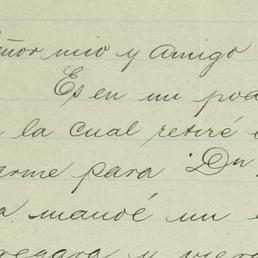 eñor mio y Amigo
Es en mi pod
la cual retiré
arme para Dn
mandé un
regara y